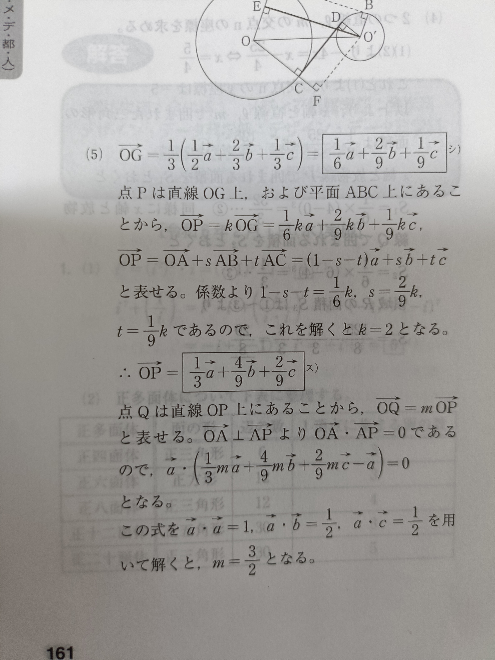 メ・デ・都・人)
E
B
D
O
O'
C
F
(5) $\overrightarrow{OG}=\frac{1}{3}\left(\frac{1}{2}\vec{a}+\frac{2}{3}\vec{b}+\frac{1}{3}\vec{c}\right)=\boxed{\frac{1}{6}\vec{a}+\frac{2}{9}\vec{b}+\frac{1}{9}\vec{c}}$ シ)
点Pは直線OG上，および平面ABC上にあるこ
とから，$\overrightarrow{OP}=k\overrightarrow{OG}=\frac{1}{6}k\vec{a}+\frac{2}{9}k\vec{b}+\frac{1}{9}k\vec{c}$,
$\overrightarrow{OP}=\overrightarrow{OA}+s\overrightarrow{AB}+t\overrightarrow{AC}=(1-s-t)\vec{a}+s\vec{b}+t\vec{c}$
と表せる。係数より $1-s-t=\frac{1}{6}k$, $s=\frac{2}{9}k$,
$t=\frac{1}{9}k$ であるので，これを解くと $k=2$ となる。
∴ $\overrightarrow{OP}=\boxed{\frac{1}{3}\vec{a}+\frac{4}{9}\vec{b}+\frac{2}{9}\vec{c}}$ ス)
点Qは直線OP上にあることから，$\overrightarrow{OQ}=m\overrightarrow{OP}$
と表せる。$\overrightarrow{OA}\perp\overrightarrow{AP}$ より $\overrightarrow{OA}\cdot\overrightarrow{AP}=0$ である
ので，$\vec{a}\cdot\left(\frac{1}{3}m\vec{a}+\frac{4}{9}m\vec{b}+\frac{2}{9}m\vec{c}-\vec{a}\right)=0$
となる。
この式を $\vec{a}\cdot\vec{a}=1$, $\vec{a}\cdot\vec{b}=\frac{1}{2}$, $\vec{a}\cdot\vec{c}=\frac{1}{2}$ を用
いて解くと，$m=\frac{3}{2}$ となる。
161